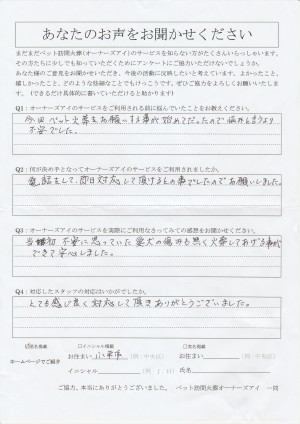 あなたのお声をお聞かせください
まだまだペット訪問火葬(オーナーズアイ)のサービスを知らない方がたくさんいらっしゃいます。
その方たちに少しでも知っていただくためにアンケートにご協力いただけないでしょうか。
あなた様のご意見をお聞かせいただき、今後の活動に反映したいと考えています。よかったこと、
嬉しかったこと、どのような些細なことでもけっこうです。ぜひご協力をよろしくお願いいたします。
(できるだけ具体的に書いていただけると助かります)
Q1：オーナーズアイのサービスをご利用される前に悩んでいたことをお教えください。
今回ペット火葬をお願いする事が始めてだったので悩みと言うより
不安でした。
Q2：何が決め手となってオーナーズアイのサービスをご利用されましたか。
電話をして即日対応して頂けるとの事でしたのでお願いしました。
Q3：オーナーズアイのサービスを実際にご利用なさってみての感想をお聞かせください。
当初不安に思っていた愛犬の傷みも無く火葬してあげる事が
できて安心しました。
Q4：対応したスタッフの対応はいかがでしたか。
とても感じ良く対応して頂きありがとうございました。
匿名掲載 □イニシャル掲載 □実名掲載
ホームページでご紹介
お住まい (例：中央区) お住まい (例：中央区)
イニシャル (例：J.H) 氏名
ご協力、本当にありがとうございました。 ペット訪問火葬オーナーズアイ 一同